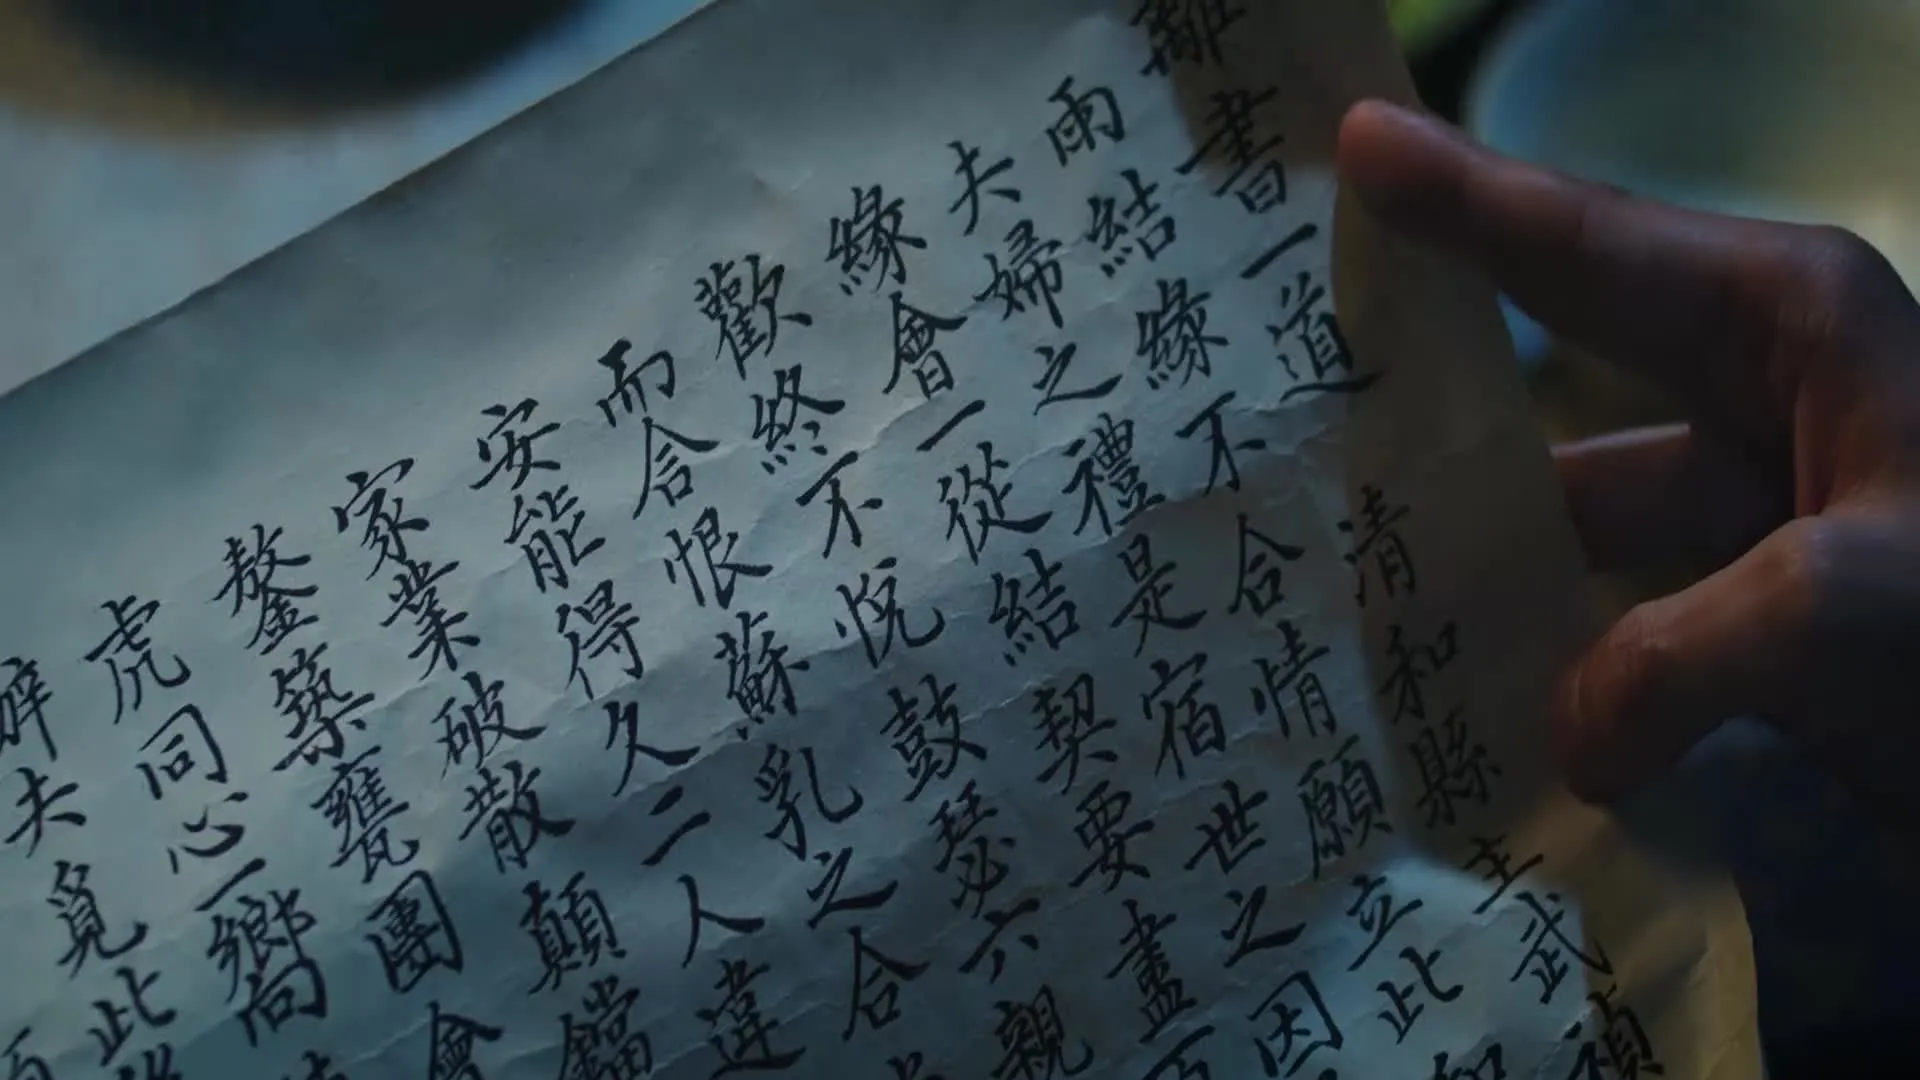 離書一道 清和縣主武禎
雨結緣不合情願立此如
夫婦之禮是宿世之因
緣會一從結契要盡百
歡終不悅鼓瑟六親
而合恨蘇乳之合
安能得久二人違
家業破散顛鐺
鏊築甕團會
虎同心一嚮
解夫覓此